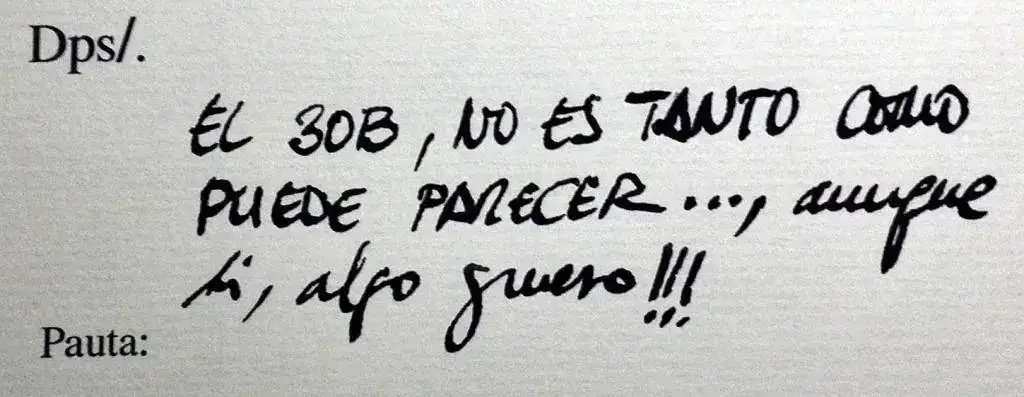 Dps/.
EL 30B, NO ES TANTO COMO
PUEDE PARECER..., aunque
si, algo grueso!!!
Pauta: